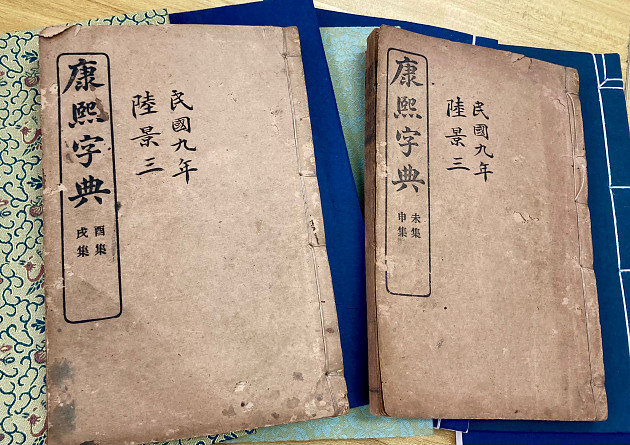 康熙字典
酉集
戌集
民國九年
陸景三
康熙字典
未集
申集
民國九年
陸景三